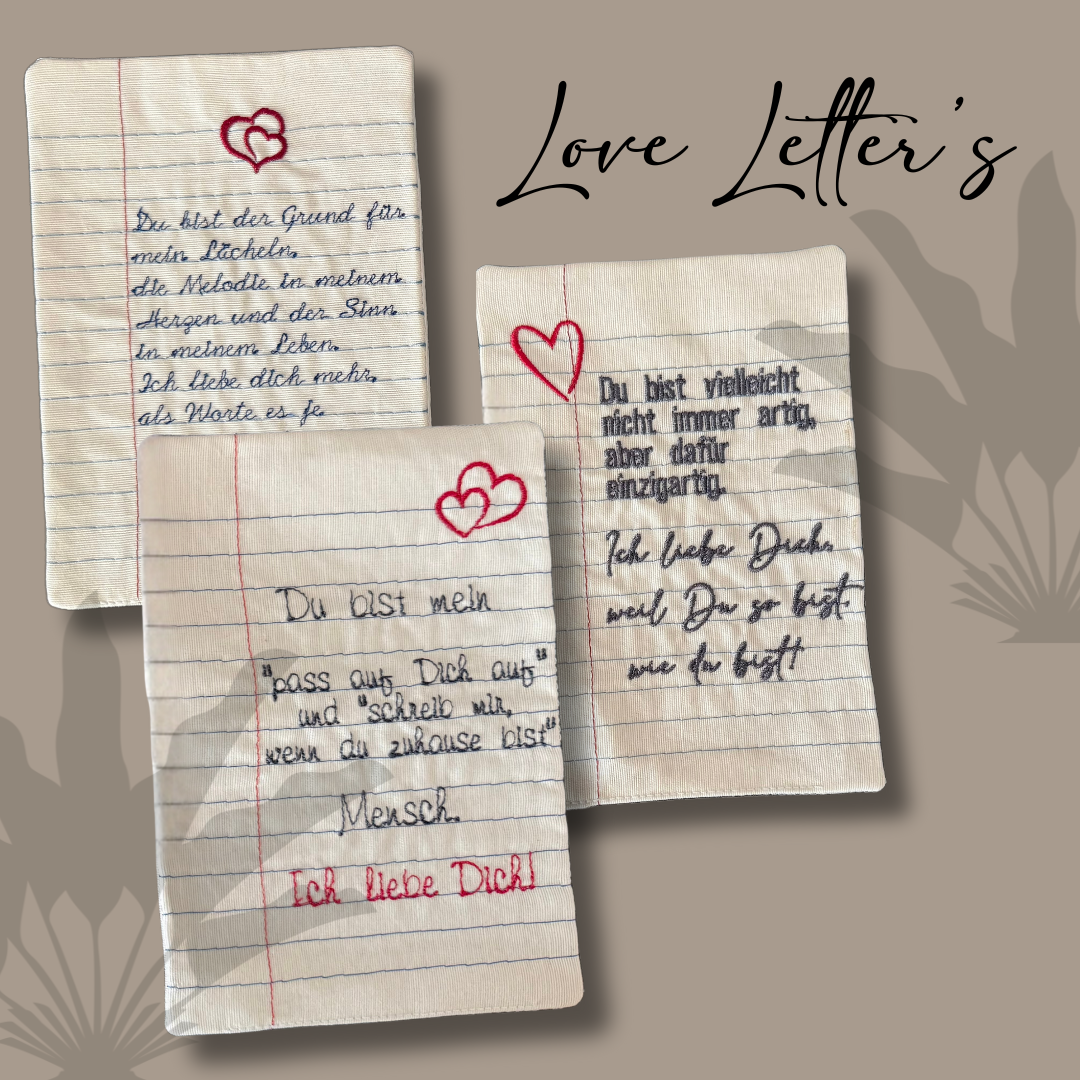 Love Letter's
Du bist der Grund für
mein Lächeln,
die Melodie in meinem
Herzen und der Sinn
in meinem Leben.
Ich liebe dich mehr,
als Worte es je
Du bist vielleicht
nicht immer artig,
aber dafür
einzigartig.
Ich liebe Dich,
weil Du so bist,
wie du bist!
Du bist mein
"pass auf Dich auf"
und "schreib mir,
wenn du zuhause bist"
Mensch.
Ich liebe Dich!